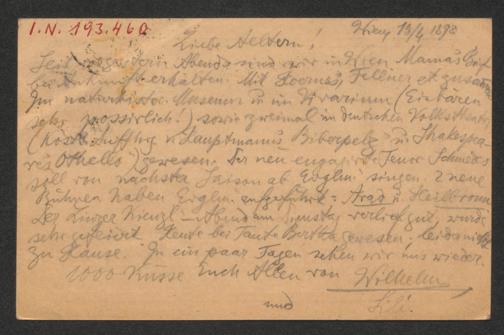 I.N. 193.460
Wien, 13/4 1898
Liebe Aeltern!
Seit gestern Abends sind wir in Wien Mamas Brief
bei Ankunft erhalten. Mit Fellner etc
Im naturhistor. Museum u im Vivarium (Eisbären
sehr possirlich!) sowie zweimal im deutschen Volkstheater
(köstl. Aufführg v Hauptmanns Biberpelz u. Shakespea
re's Othello) gewesen. Der neu engagirte Tenor Schmedes
soll von nächster Saison ab Evglm. singen. 2 neue
Bühnen haben Evglm. aufgeführt: Arad u. Heilbronn
Der Kienzl-Abend am verlief gut, wurde
sehr gefeiert Heute bei Tante Bertha gewesen, leider nicht
zu Hause. In ein paar Tagen sehen wir uns wieder.
1000 Küsse Euch Allen von Wilhelm
und
Lili.